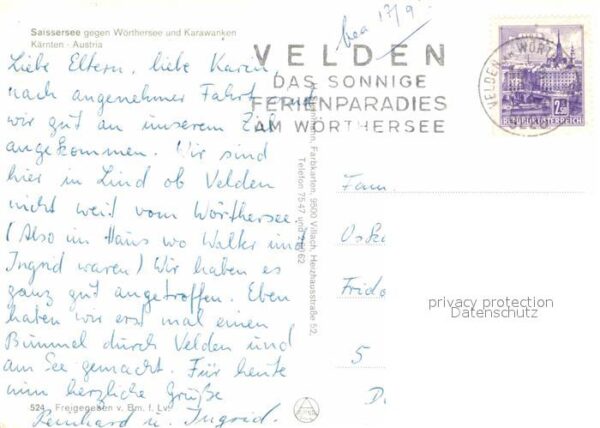 Saissersee gegen Wörthersee und Karawanken
Kärnten - Austria
Liebe Eltern, liebe Karin,
nach angenehmer Fahrt sind
wir gut an unserem Ziel
angekommen. Wir sind
hier in Lind ob Velden
nicht weit vom Wörthersee.
(Also im Haus wo Walter und
Ingrid waren) Wir haben es
ganz gut angetroffen. Eben
haben wir erst mal einen
Bummel durch Velden und
am See gemacht. Für heute
nun herzliche Grüße
Reinhard u. Ingrid.
524 Freigegeben v. Bm. f. Lv.
17/9
VELDEN
DAS SONNIGE
FERIENPARADIES
AM WÖRTHERSEE
VELDEN WÖRTH
2.50
REPUBLIK ÖSTERREICH
Farbkarten, 9500 Villach, Herzhausstraße 52,
Telefon 75 47 und
Fam.
Frido
5
D.
privacy protection
Datenschutz